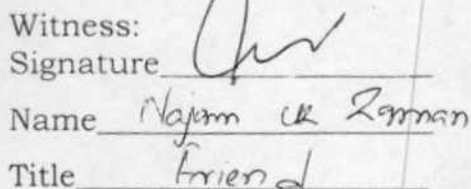 Witness:
Signature
Name Najam ur Zaman
Title Friend